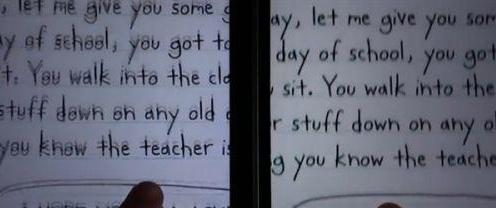 , let me give you some
y of school, you got to
t. You walk into the
stuff down on any old
you know the teacher is
ay, let me give you
day of school, you got
sit. You walk into the
r stuff down on any
g you know the